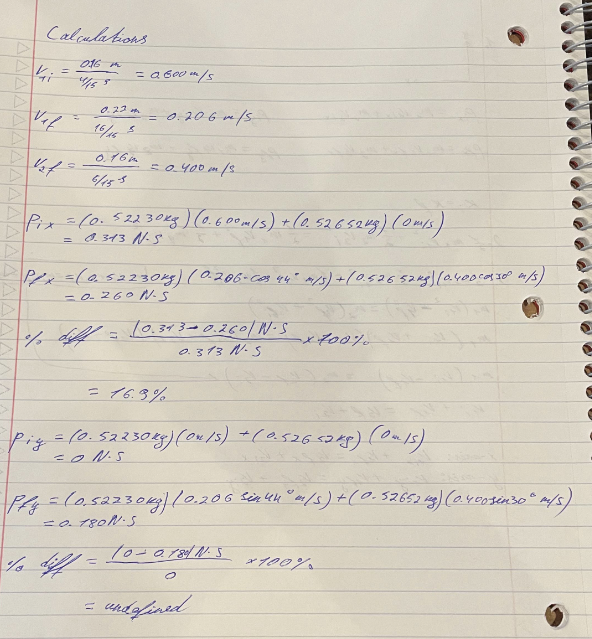 Calculations
V1i = 0.16 m / 4/15 s = 0.600 m/s
V1f = 0.22 m / 16/15 s = 0.206 m/s
V2f = 0.16m / 6/15 s = 0.400 m/s
Pix = (0.52230kg)(0.600m/s) + (0.52652kg)(0m/s)
= 0.313 N·S
Pfx = (0.52230kg)(0.206·cos44° m/s) + (0.52652kg)(0.400cos30° m/s)
= 0.260 N·S
% diff = |0.313 - 0.260| N·S / 0.313 N·S × 100%
= 16.9%
Piy = (0.52230kg)(0m/s) + (0.52652kg)(0m/s)
= 0 N·S
Pfy = (0.52230kg)(0.206 sin44° m/s) + (0.52652kg)(0.400sin30° m/s)
= 0.180N·S
% diff = |0 - 0.180| N·S / 0 × 100%
= undefined